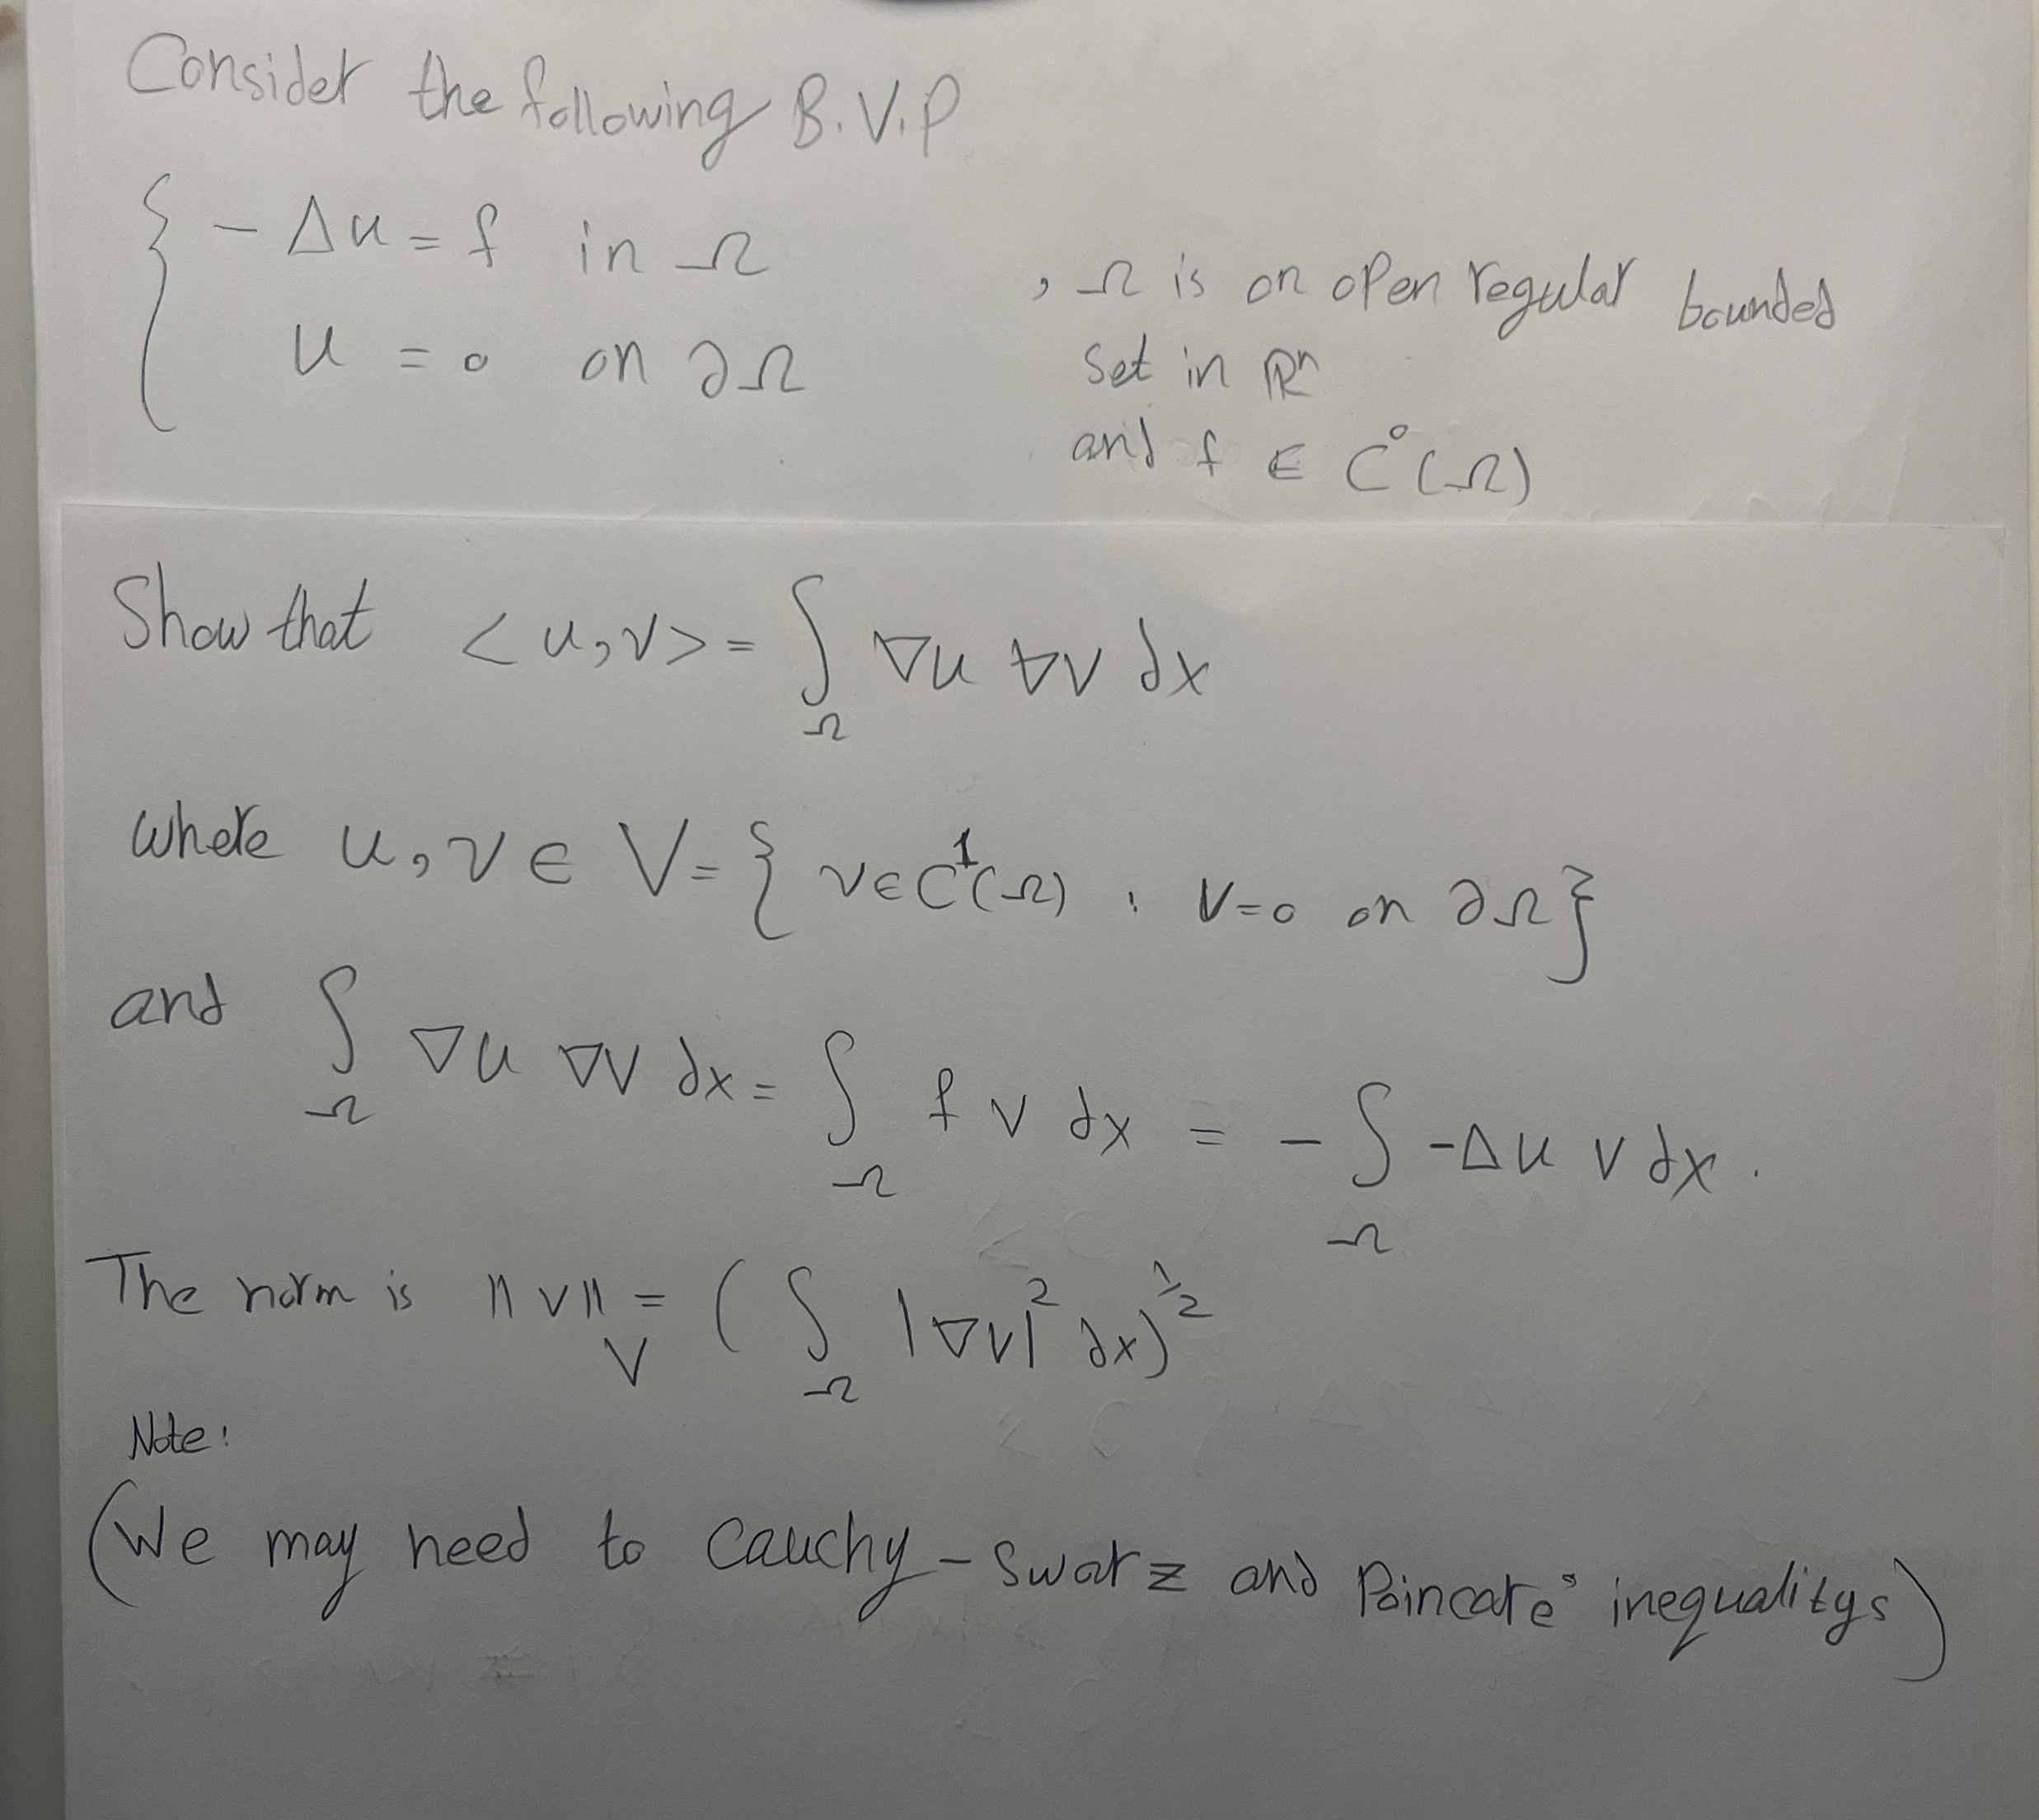 Consider the following B.V.P
{ - Δu = f in Ω
u = 0 on ∂Ω
, Ω is on open regular bounded
set in ℝⁿ
and f ∈ C⁰(Ω)
Show that <u,v> = ∫_Ω ∇u ∇v dx
where u, v ∈ V = { v∈C¹(Ω) : v=0 on ∂Ω }
and ∫_Ω ∇u ∇v dx = ∫_Ω f v dx = - ∫_Ω -Δu v dx .
The norm is ||v||_V = ( ∫_Ω |∇v|² dx)^½
Note:
(We may need to Cauchy - Swarz and Poincare° inequalitys)